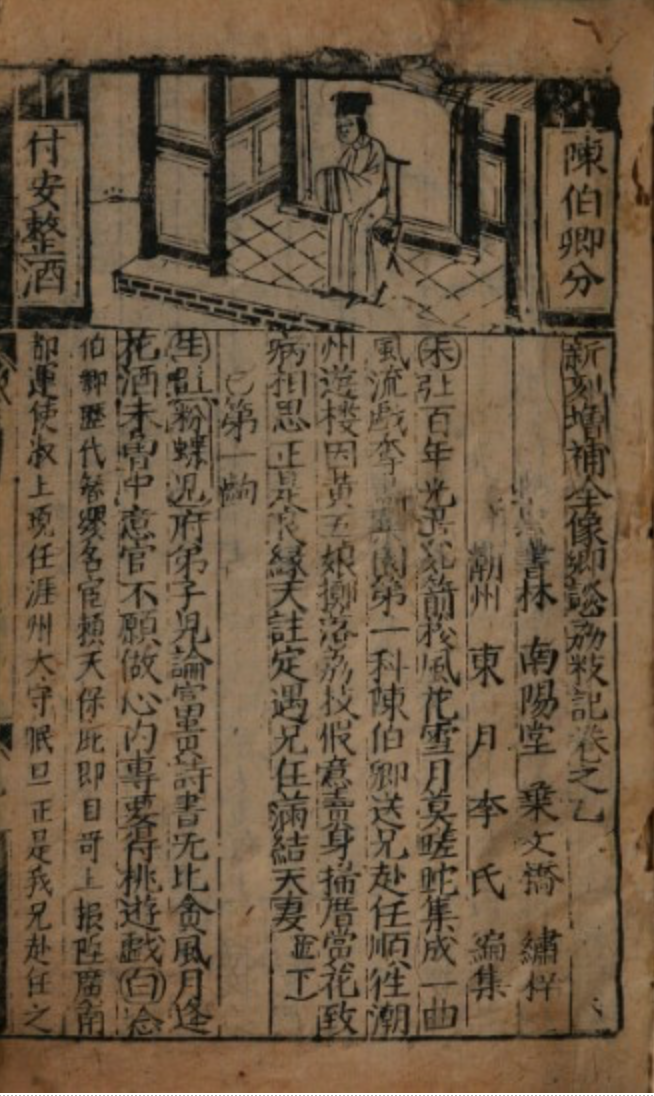 陳伯卿分
付安整酒
新刻增補全像鄉談荔枝記卷之乙
書林 南陽堂 葉文橋 繡梓
潮州 東月李氏 編集
末 引 百年光景箭 風花雪月莫蹉跎集成一曲
風流戲 園第一科陳伯卿送兄赴任順往潮
州遊樓因黃五娘擲落荔枝假意賣身掃厝賞花致
病相思正是良緣天註定遇兄任滿結夫妻 並下
第一齣
生 粉蝶兒府弟子兒論富貴詩書无比貪風月逢
花酒未 中意官不願做心內專要得桃遊戲白念
伯卿歷代簪纓名宦賴天保庇即目哥上 陞廣南
都運使叔上現任涯州太守眠旦正是我兄赴任之